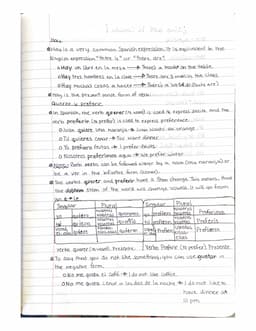 Hay
Hay is a very common Spanish expression. It is equivalent to the
English expression "There is" or "There are".
Hay un libro en la mesa → There's a book on the table.
Hay tres hombres en la clase → There are 3 men in the class
Hay muchas cosas a hacer → There's a lot to do (there are)
Hay is the present tense form of haber
Querer y preferir
In Spanish, the verb querer (to want) is used to express desire, and the
verb preferir (to prefer) is used to express preference.
Juan quiere una naranja → Juan wants an orange.
Tú quieres cenar → You want dinner.
Tú prefieres frutas → I prefer
Nosotros preferimos → we prefer winter
Both verbs can be followed either by a noun (una naranja) or
be a verb in the infinitive form (cenar).
The verbs querer and preferir have a stem change. This means, that
the stem of the word will change vowels. It will go from
e → ie
Singular Plural Singular Plural
yo quiero queremos yo prefiero Preferimos
tú quieres tú prefieres
quiere quieren prefiere Prefieren
Verbo Querer (to want) Presente Verbo Preferir (to prefer) Presente
To say that you do not like something, you can use gustar in
the negative form.
No me gusta el café → I do not like coffee.
No me gusta cenar a las diez de la noche → I do not like to
have dinner at
10 pm.